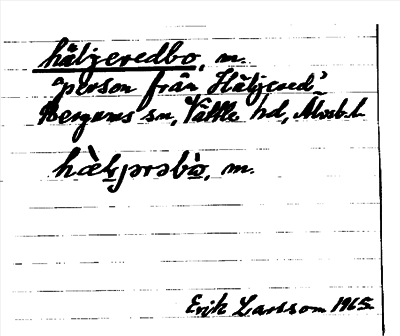 håljeredbo, m.
person från Håljered,
Bergums sn, Vättle hd, Älvsb.l.
hæ̀ljərəbò, m.
Erik Larsson 1965